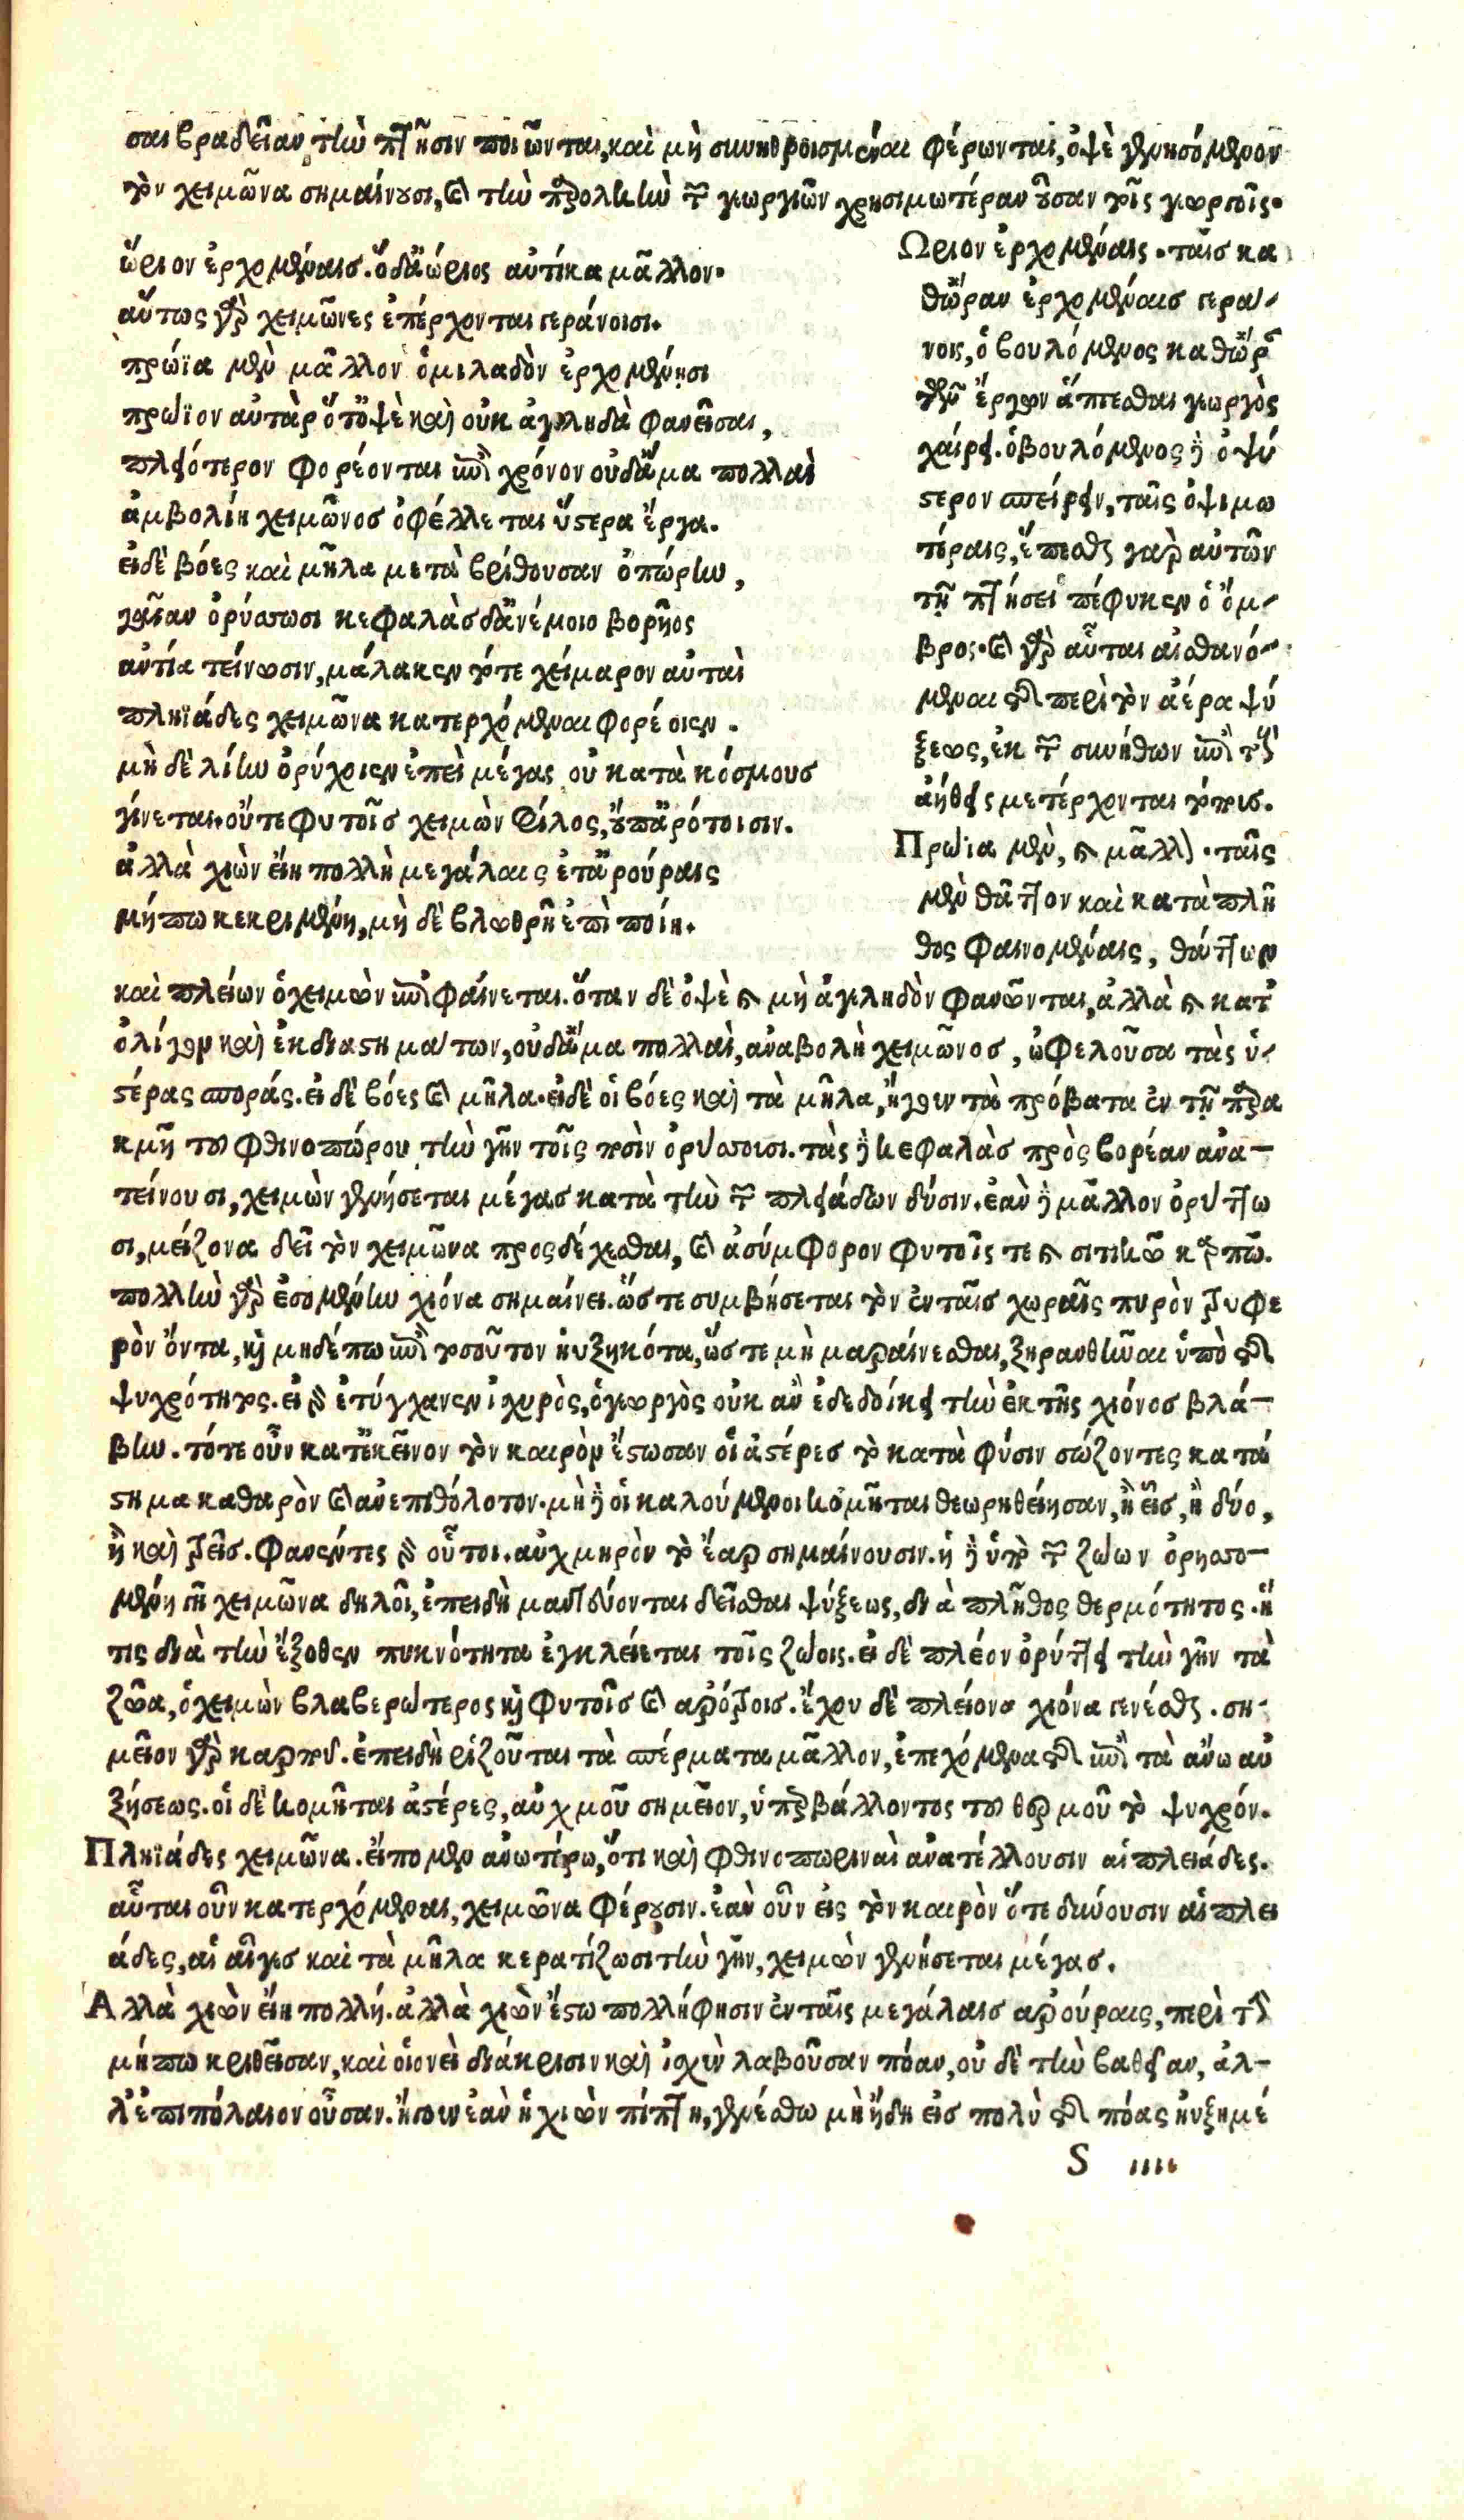 σαι βραδεῖαν τὴν πτῆσιν ποιῶνται, καὶ μὴ συνηθροισμέναι φέρωνται, ὀψὲ γενησόμενον
τὸν χειμῶνα σημαίνουσι, καὶ τὴν προβολὴν τῶν γεωργιῶν χρησιμωτέραν οὖσαν τοῖς γεωργοῖς.
ὥριον ἐρχομέναισ. ὁ δ᾽ ἀώριος αὐτίκα μᾶλλον.
αὕτως γὰρ χειμῶνες ἐπέρχονται γεράνοισι.
πρώϊα μὲν μᾶλλον ὁμιλαδὸν ἐρχομένῃσι
πρώϊον αὐτὰρ ὅτ᾽ ὀψὲ καὶ οὐκ ἀγεληδὰ φανεῖσαι,
πλειότερον φορέονται ἐπὶ χρόνον οὐδ᾽ ἅμα πολλαὶ
ἀμβολίη χειμῶνοσ ὀφέλλεται ὕστερα ἔργα.
εἰ δὲ βόες καὶ μῆλα μετὰ βρίθουσαν ὀπώρην,
γαῖαν ὀρύσσωσι κεφαλὰσ δ᾽ ἀνέμοιο βορῆος
ἀντία τείνωσιν, μάλα κεν τότε χείμαρον αὐταὶ
πληϊάδες χειμῶνα κατερχόμεναι φορέοιεν.
μὴ δὲ λίην ὀρύχοιεν ἐπεὶ μέγας οὐ κατὰ κόσμουσ
γίνεται. οὔτε φυτοῖσ χειμὼν φίλος, οὔτ᾽ ἀρότοισιν.
ἀλλὰ χιὼν εἴη πολλὴ μεγάλαις ἐπ᾽ ἀρούραις
μήπω κεκριμένῃ, μὴ δὲ βλωθρῇ ἐπὶ ποίῃ.
Ὥριον ἐρχομέναις. ταῖσ κα
θ᾽ ὥραν ἐρχομέναισ γερά-
νοις, ὁ βουλόμενος καθ᾽ ὥραν
τῶν ἔργων ἅπτεσθαι γεωργὸς
χαίρει. ὁ βουλόμενος δὲ ὀψύ
στερον σπείρειν, ταῖς ὀψιμω
τέραις, ἕπεσθαι γὰρ αὐτῶν
τῇ πτήσει πέφυκεν ὁ ὄμ-
βρος. καὶ γὰρ αὗται αἰσθανό-
μεναι τῆς περὶ τὸν ἀέρα ψύ
ξεως, ἐκ τῶν συνήθων ἐπὶ τοὺς
ἀήθεις μετέρχονται τόποισ.
Πρώϊα μὲν, καὶ μᾶλλον. ταῖς
μὲν θᾶττον καὶ κατὰ πλῆ
θος φαινομέναις, θάττων
καὶ πλείων ὁ χειμὼν ἐπιφαίνεται. ὅταν δὲ ὀψὲ καὶ μὴ ἀγεληδὸν φανῶνται, ἀλλὰ καὶ κατ᾽
ὀλίγον καὶ ἐκ διαστημάτων, οὐδ᾽ ἅμα πολλαὶ, ἀναβολὴ χειμῶνοσ, ὠφελοῦσα τὰς ὑ-
στέρας σποράς. εἰ δὲ βόες καὶ μῆλα. εἰ δὲ οἱ βόες καὶ τὰ μῆλα, ἤγουν τὰ πρόβατα ἐν τῇ παρα
κμῇ τοῦ φθινοπώρου τὴν γῆν τοῖς ποσὶν ὀρύσσοισι. τὰς δὲ κεφαλὰσ πρὸς βορέαν ἀνα-
τείνουσι, χειμὼν γενήσεται μέγασ κατὰ τὴν τῶν πλειάδων δύσιν. ἐὰν δὲ μᾶλλον ὀρύττω
σι, μείζονα δεῖ τὸν χειμῶνα προςδέχεσθαι, καὶ ἀσύμφορον φυτοῖς τε καὶ σιτικῷ καρπῷ.
πολλὴν γὰρ ἐσομένην χιόνα σημαίνει. ὥστε συμβήσεται τὸν ἐν ταῖσ χωραῖς πυρὸν τρυφε
ρὸν ὄντα, καὶ μηδέπω ἐπὶ τοσοῦτον ηὐξηκότα, ὥστε μὴ μαραίνεσθαι, ξηρανθῆναι ὑπὸ τῆς
ψυχρότητος. εἰ γὰρ ἐτύγχανεν ἰσχυρὸς, ὁ γεωργὸς οὐκ ἂν ἐδεδοίκει τὴν ἐκ τῆς χιόνοσ βλά-
βην. τότε οὖν κατ᾽ ἐκεῖνον τὸν καιρὸν ἔστωσαν οἱ ἀστέρεσ τὸ κατὰ φύσιν σώζοντες κατά
στημα καθαρὸν καὶ ἀνεπιθόλοτον. μὴ δὲ οἱ καλούμενοι κομῆται θεωρηθείησαν, ἢ εἷσ, ἢ δύο,
ἢ καὶ τρεῖσ. φανέντες γὰρ οὗτοι. αὐχμηρὸν τὸ ἔαρ σημαίνουσιν. ἡ δὲ ὑπὸ τῶν ζώων ὀρησσο-
μένη γῆ χειμῶνα δηλοῖ, ἐπειδὴ μαντεύονται δεῖσθαι ψύξεως, διὰ πλῆθος θερμότητος. ἥ
τις διὰ τὴν ἔξοθεν πυκνότητα ἐγκλείεται τοῖς ζώοις. εἰ δὲ πλέον ὀρύττει τὴν γῆν τὰ
ζῶα, ὁ χειμὼν βλαβερώτερος καὶ φυτοῖσ καὶ ἀρότροισ. ἔχου δὲ πλείονα χιόνα γενέσθαι. ση-
μεῖον γὰρ καρποῦ. ἐπειδὴ ῥιζοῦται τὰ σπέρματα μᾶλλον, ἐπεχόμενα τῆς ἐπὶ τὰ ἄνω αὐ
ξήσεως. οἱ δὲ κομῆται ἀστέρες, αὐχμοῦ σημεῖον, ὑπερβάλλοντος τοῦ θερμοῦ τὸ ψυχρόν.
Πληϊάδες χειμῶνα. εἴπομεν ἀνωτέρω, ὅτι καὶ φθινοπωριναὶ ἀνατέλλουσιν αἱ πλειάδες.
αὗται οὖν κατερχόμεναι, χειμῶνα φέρουσιν. ἐὰν οὖν εἰς τὸν καιρὸν ὅτε δύνουσιν αἱ πλει
άδες, αἱ αἶγεσ καὶ τὰ μῆλα κερατίζωσι τὴν γῆν, χειμὼν γενήσεται μέγασ.
Ἀλλὰ χιὼν εἴη πολλή. ἀλλὰ χιὼν ἔστω πολλή φησιν ἐν ταῖς μεγάλαισ ἀρούραις, περὶ τὴν
μήπω κριθεῖσαν, καὶ οἱονεὶ διάκρισιν καὶ ἰσχὺν λαβοῦσαν πόαν, οὐ δὲ τὴν βαθεῖαν, ἀλ-
λ᾽ ἐπιπόλαιον οὖσαν. ἤγουν ἐὰν ἡ χιὼν πίπτῃ, γενέσθω μὴ ἤδη εἰσ πολὺ τῆς πόας ηὐξημέ
S iiii